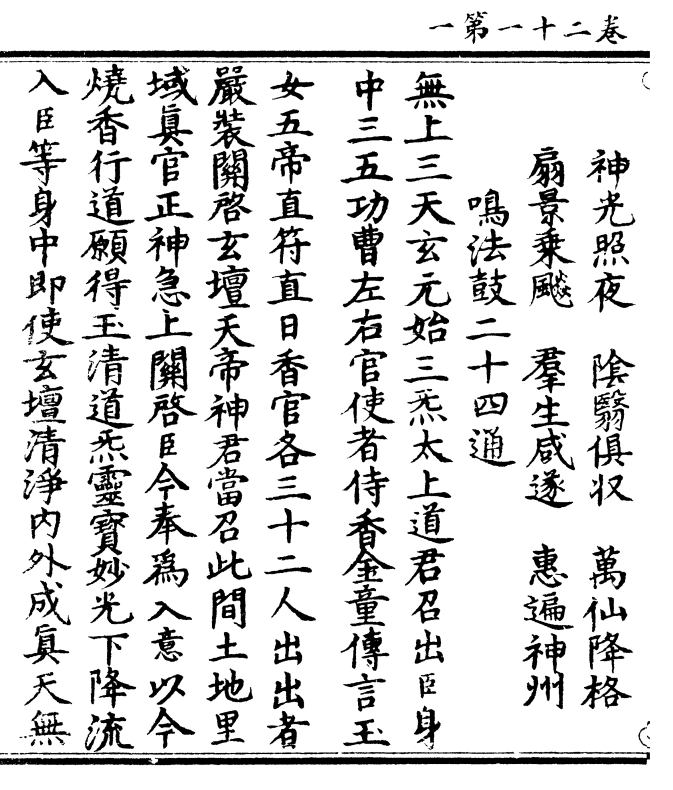 卷二十一第一
神光照夜　陰翳俱收　萬仙降格
扇景乘飈　羣生咸遂　惠遍神州
鳴法鼓二十四通
無上三天玄元始三炁太上道君召出臣身
中三五功曹左右官使者侍香金童傳言玉
女五帝直符直日香官各三十二人出出者
嚴裝關啓玄壇天帝神君當召此間土地里
域眞官正神急上關啓臣今奉爲入意以今
燒香行道願得玉清道炁靈寶妙光下降流
入臣等身中即使玄壇清淨內外成眞天無